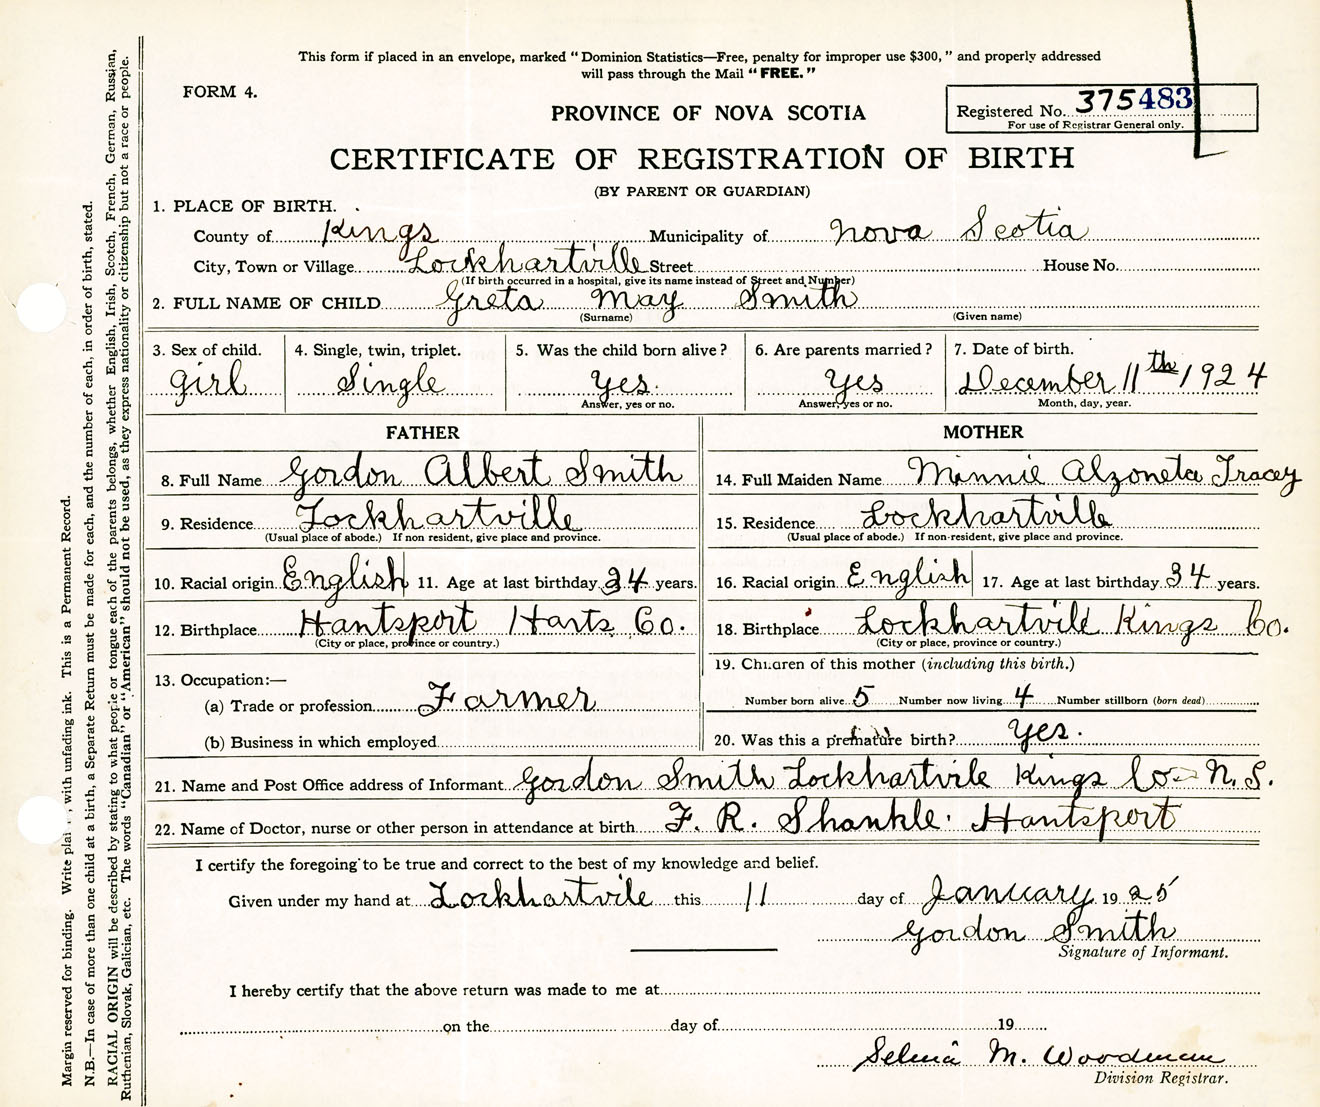 This form if placed in an envelope, marked "Dominion Statistics—Free, penalty for improper use $300," and properly addressed
will pass through the Mail "FREE."
FORM 4.
PROVINCE OF NOVA SCOTIA
Registered No. 375483
For use of Registrar General only.
CERTIFICATE OF REGISTRATION OF BIRTH
(BY PARENT OR GUARDIAN)
1. PLACE OF BIRTH.
County of Kings Municipality of Nova Scotia
City, Town or Village Lockhartville Street House No.
(If birth occurred in a hospital, give its name instead of Street and Number)
2. FULL NAME OF CHILD Greta May Smith
(Surname) (Given name)
3. Sex of child. 4. Single, twin, triplet. 5. Was the child born alive? 6. Are parents married? 7. Date of birth.
girl Single Yes. Yes December 11th 1924
Answer, yes or no. Answer, yes or no. Month, day, year.
FATHER MOTHER
8. Full Name Gordon Albert Smith 14. Full Maiden Name Minnie Alzoneta Tracey
9. Residence Lockhartville 15. Residence Lockhartville
(Usual place of abode.) If non resident, give place and province. (Usual place of abode.) If non-resident, give place and province.
10. Racial origin English 11. Age at last birthday 34 years. 16. Racial origin English 17. Age at last birthday 34 years.
12. Birthplace Hantsport Harts Co. 18. Birthplace Lockhartvill Kings Co.
(City or place, province or country.) (City or place, province or country.)
19. Children of this mother (including this birth.)
13. Occupation:—
(a) Trade or profession Farmer Number born alive 5 Number now living 4 Number stillborn (born dead)
(b) Business in which employed 20. Was this a premature birth? Yes.
21. Name and Post Office address of Informant Gordon Smith Lockhartvile Kings Co- N. S.
22. Name of Doctor, nurse or other person in attendance at birth F. R. Shankle. Hantsport
I certify the foregoing to be true and correct to the best of my knowledge and belief.
Given under my hand at Lockhartvile this 11 day of January 1925
Gordon Smith
Signature of Informant.
I hereby certify that the above return was made to me at
on the day of 19
Selma M. Woodman
Division Registrar.
Margin reserved for binding. Write plai , with unfading ink. This is a Permanent Record.
N.B.—In case of more than one child at a birth, a Separate Return must be made for each, and the number of each, in order of birth, stated.
RACIAL ORIGIN will be described by stating to what people or tongue each of the parents belongs, whether English, Irish, Scotch, French, German, Russian,
Ruthenian, Slovak, Galician, etc. The words "Canadian" or "American" should not be used, as they express nationality or citizenship but not a race or people.